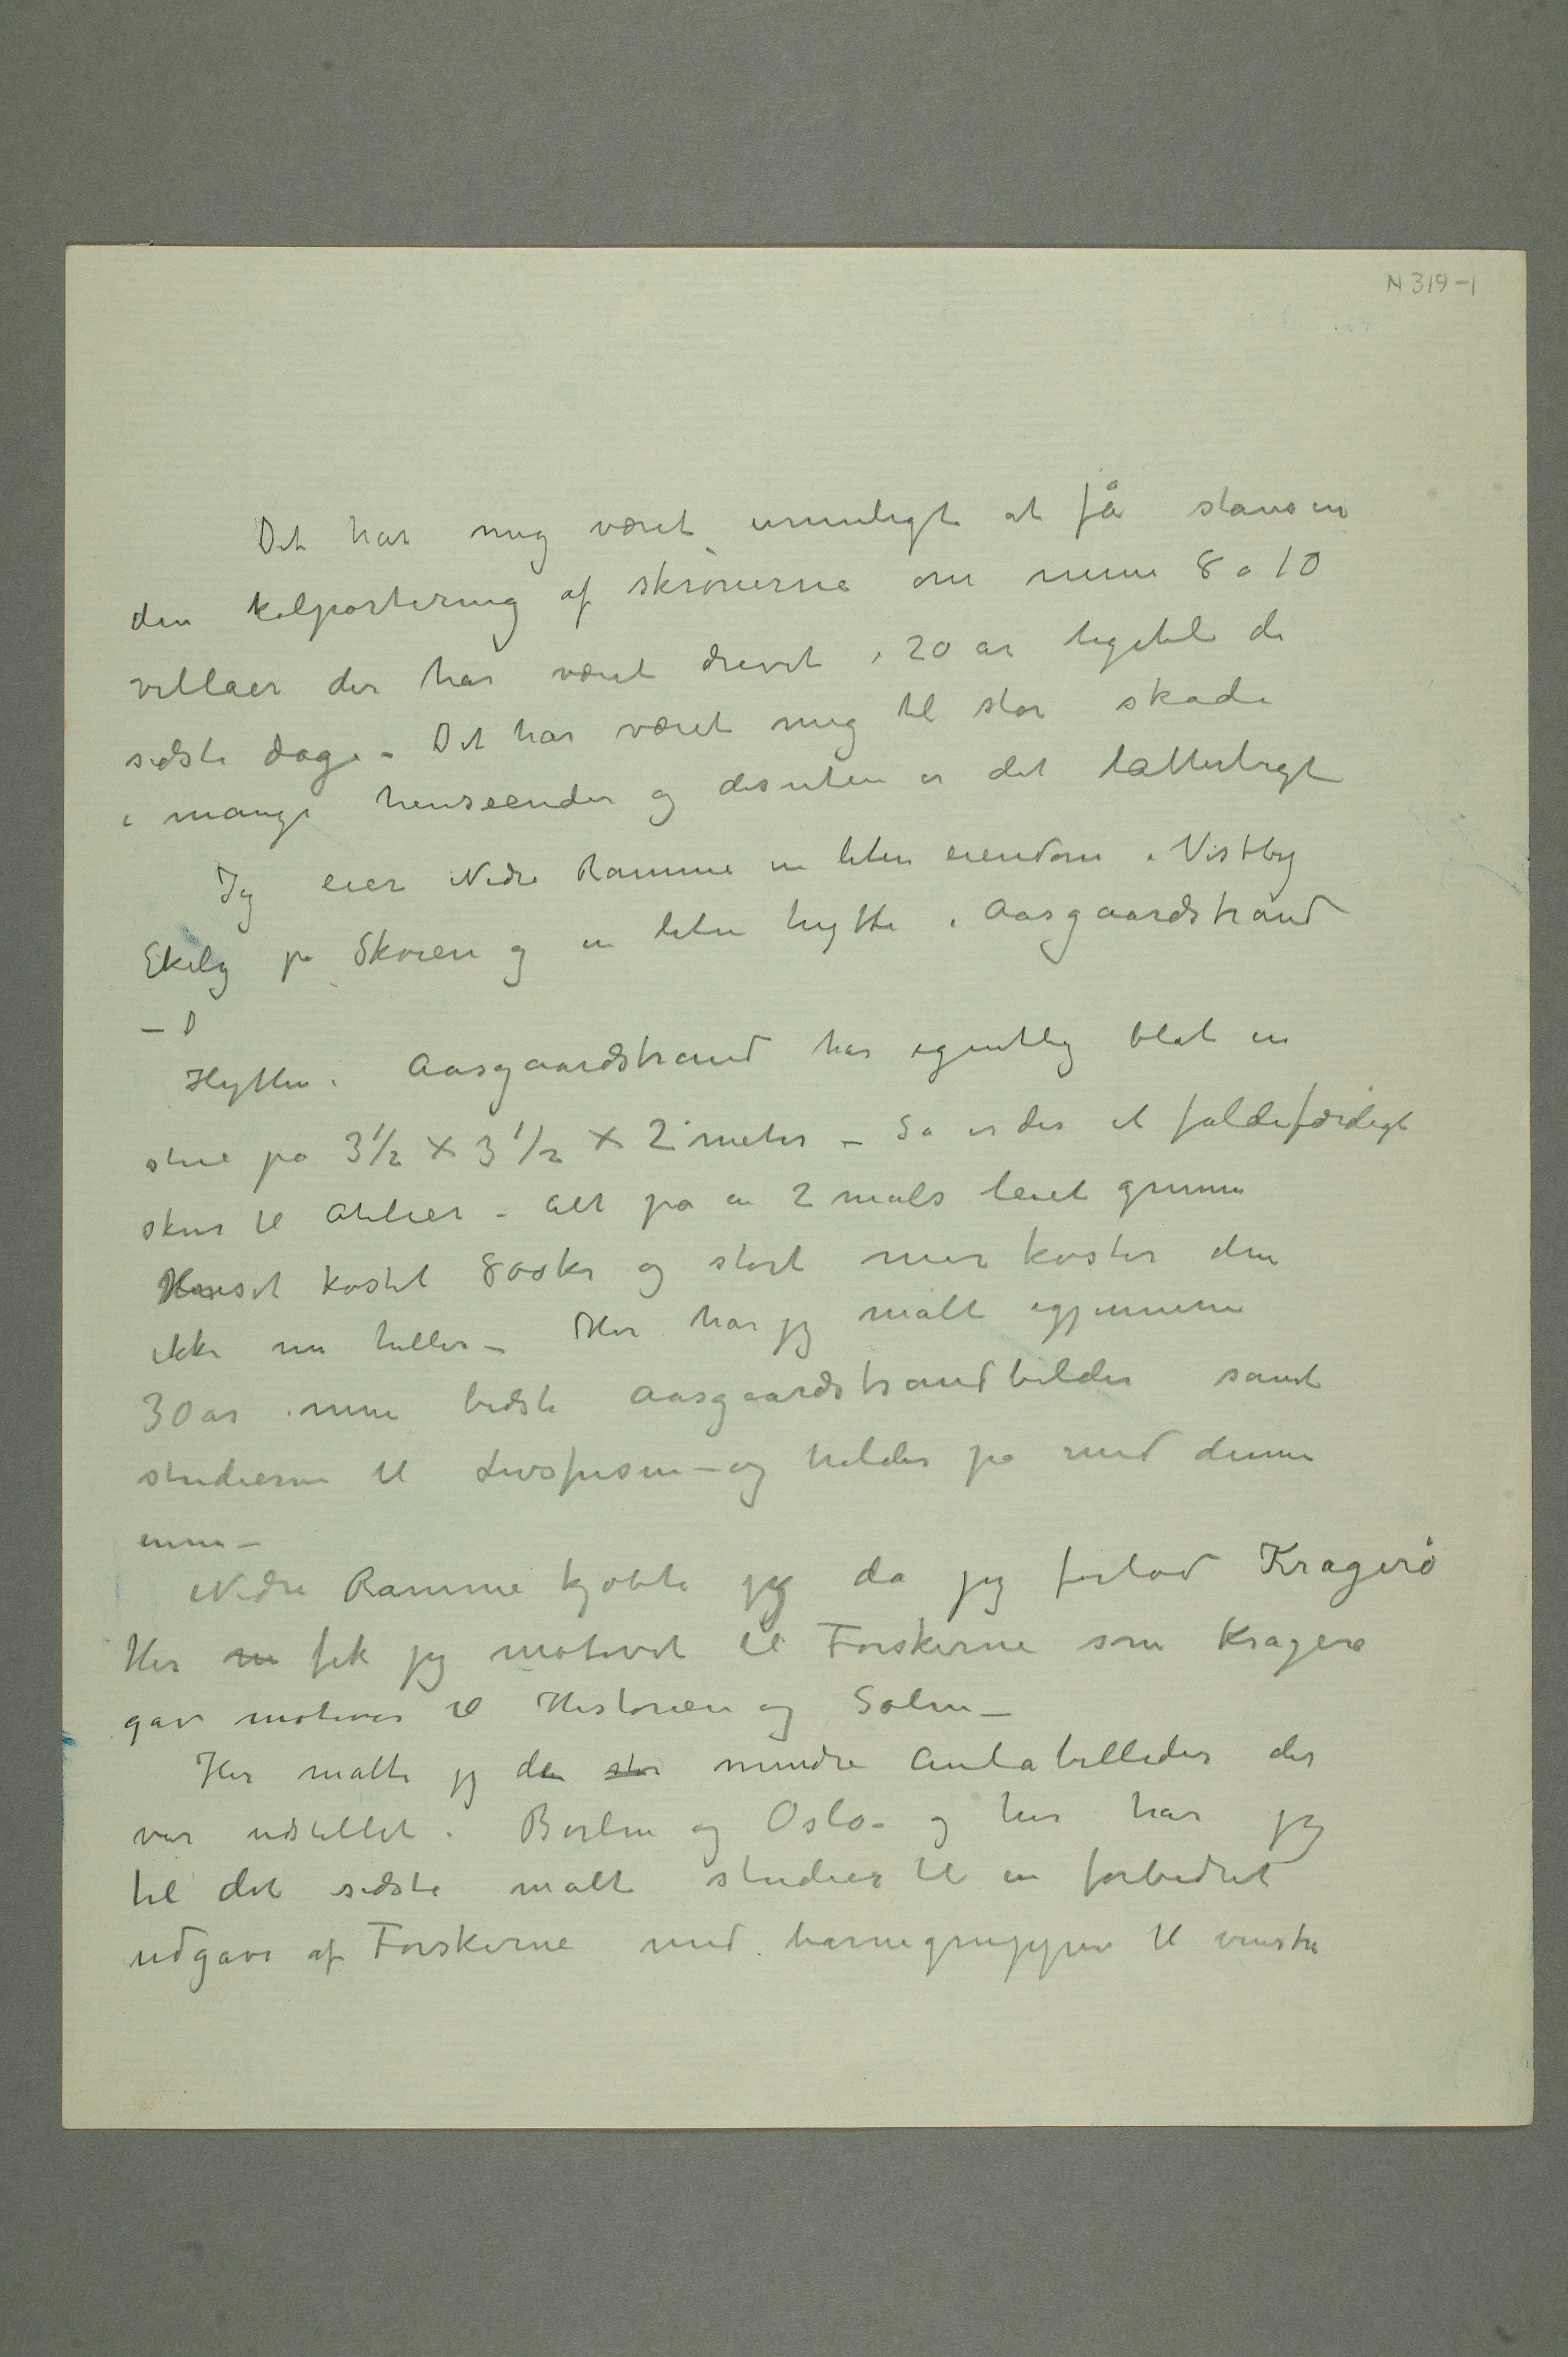 N 319-1
Det har mig været umuligt at få stanset
den kolportering af skrønerne om mine 8 a 10
villaer der har været drevet i 20 år ligetil de
sidste dage – Det har været mig til stor skade
i mange henseender og desuten er det latterligt
Jeg eier Nedre Ramme en liten eiendom i Vestby
Ekely på Skøien og en liten hytte i Aasgaardstrand
– D
Hytten i Aasgaardstrand har egentlig blot en
stue på 3 1/2 × 3 1/2 × 2 meter – Så er der et faldefærdigt
skur til Atelier – Alt på en 2 måls leiet grunn
Huset kostet 800kr og stort mer koster den
ikke nu heller – Her har jeg malt igjennem
30 år mine bedste Aasgaardstrandbilleder samt
studierne til Livsfrisen – og holder på med denne
ennu –
Nedre Ramme kjøbte jeg da jeg forlod Kragerø
Her fik jeg motivet til Forskerne som Kragerø
gav motiver til Historien og Solen –
Her malte jeg de stor mindre Aulabilleder der
var udstillet i Berlin og Oslo – og her har jeg
til det sidste malt studier til en forbedret
udgave af Forskerne med barnegruppen til venstre